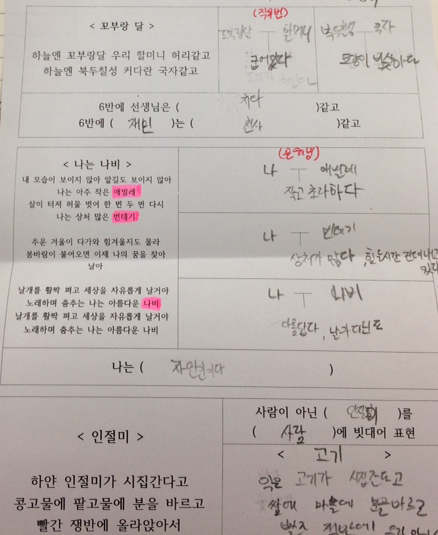 < 꼬부랑 달 >
(직유법)
할머니
국자
하늘엔 꼬부랑달 우리 할머니 허리같고
하늘엔 북두칠성 커다란 국자같고
굽어있다
모양이 비슷하다
6반에 선생님은 ( 치타 )같고
6반에 ( 재민 )는 ( 천사 )같고
< 나는 나비 >
(은유법)
내 모습이 보이지 않아 앞길도 보이지 않아
나는 아주 작은 애벌레
살이 터져 허물 벗어 한 번 두 번 다시
나는 상처 많은 번데기
추운 겨울이 다가와 힘겨울지도 몰라
봄바람이 불어오면 이제 나의 꿈을 찾아
날아
날개를 활짝 펴고 세상을 자유롭게 날거야
노래하며 춤추는 나는 아름다운 나비
날개를 활짝 펴고 세상을 자유롭게 날거야
노래하며 춤추는 나는 아름다운 나비
나 애벌레
작고 초라하다
나 번데기
상처가 많다 힘든시간
나 나비
아름답다,
나는 ( )
< 인절미 >
사람이 아닌 ( 인절미 )를
( 사람 )에 빗대어 표현
하얀 인절미가 시집간다고
콩고물에 팥고물에 분을 바르고
빨간 쟁반에 올라앉아서
< 고기 >
익은 고기가 시집간다고
쌈에 마늘에 분을 바르고